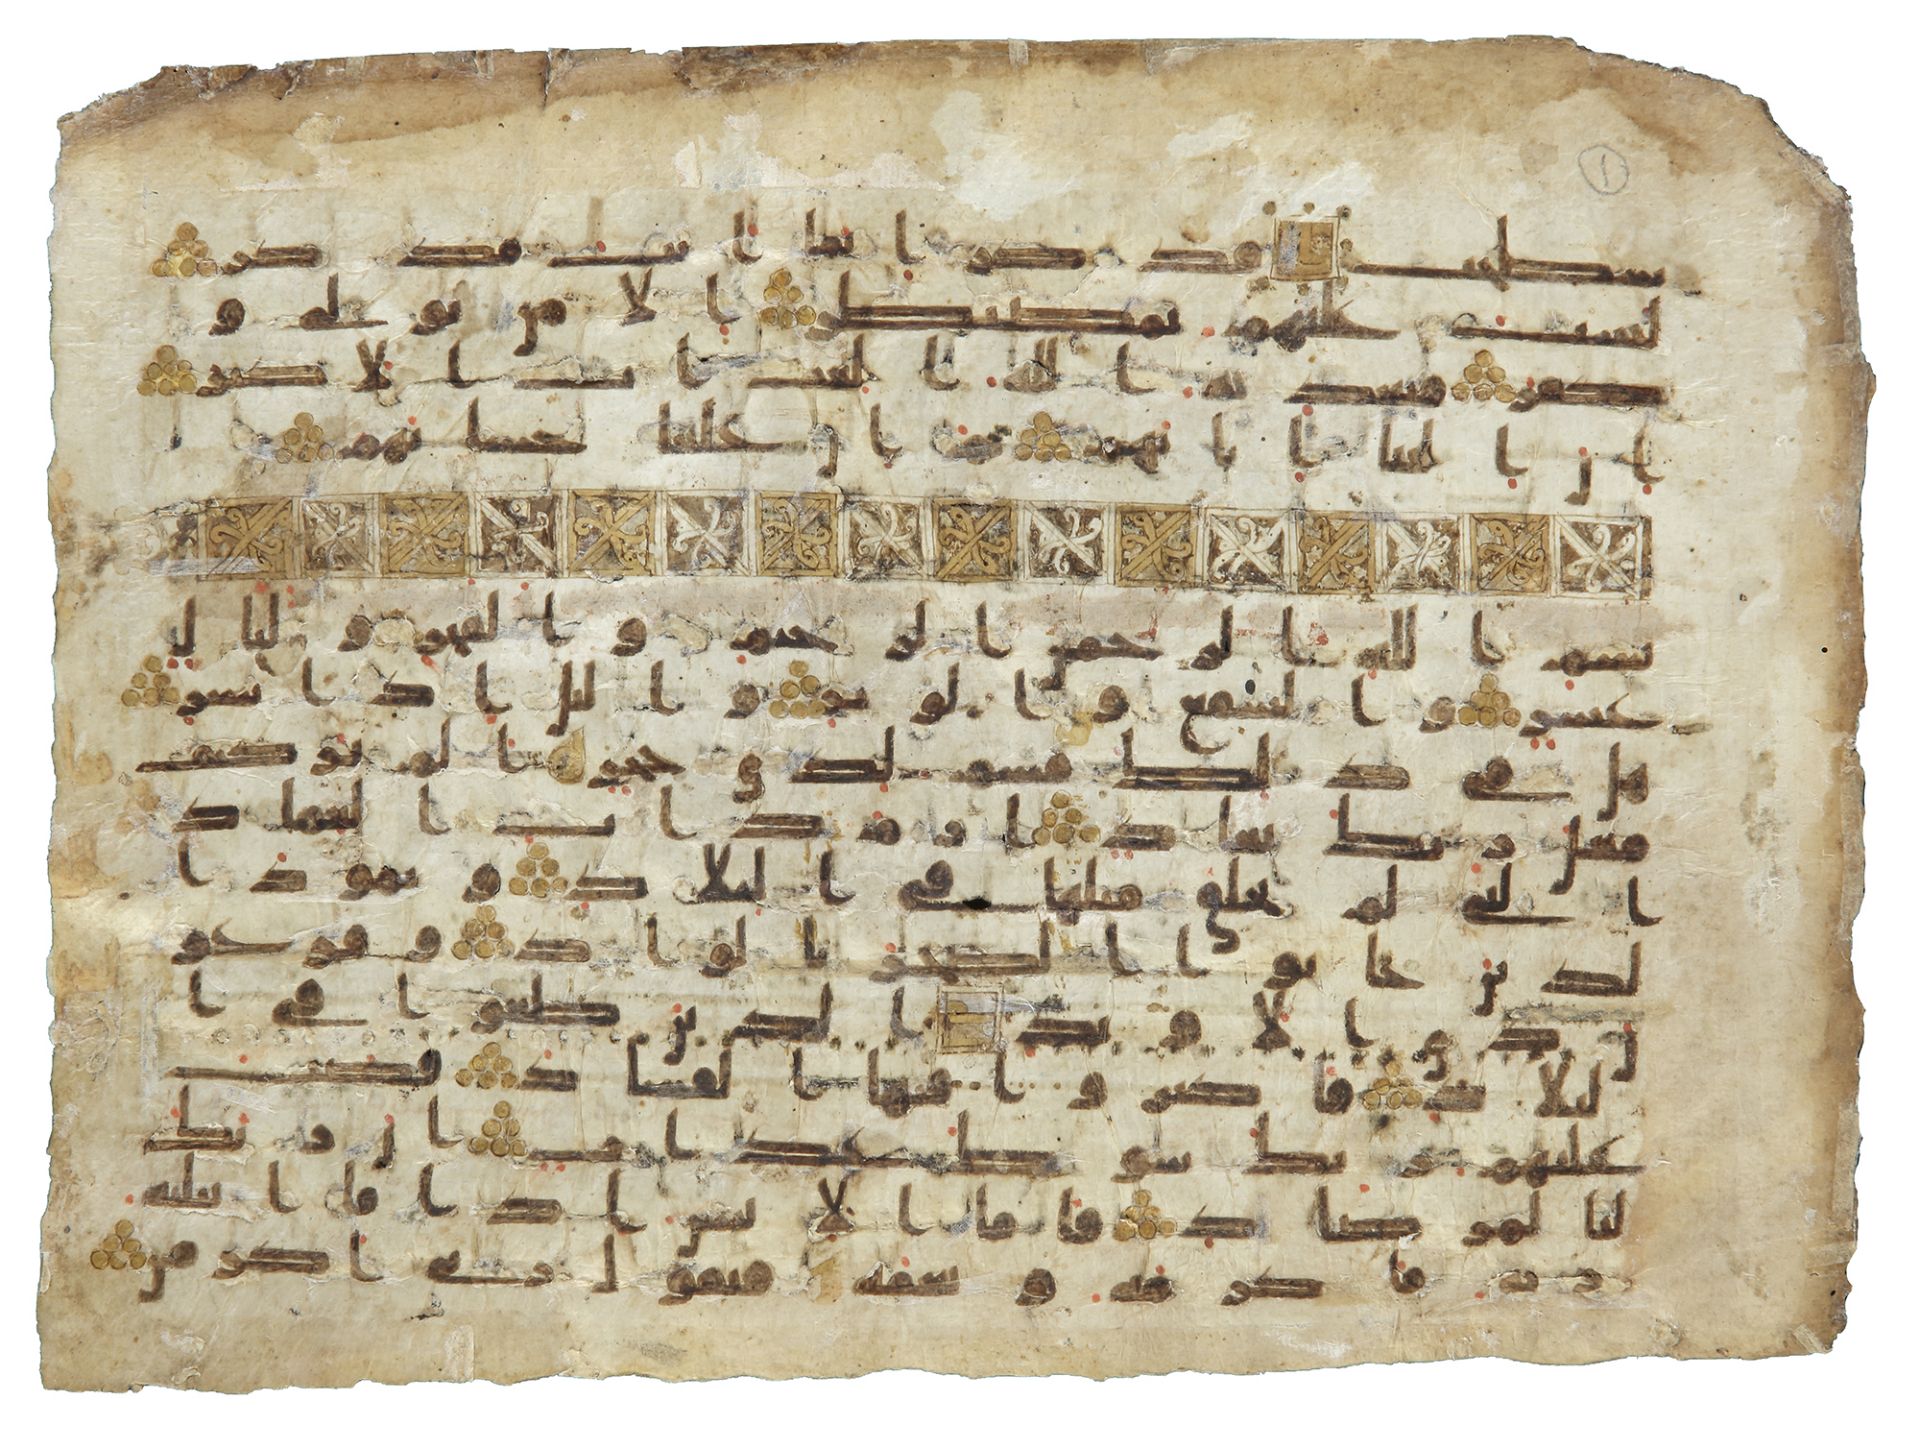 ١
سطحت فذكر انما انت مذكر
لست عليهم بمصيطر الا من تولى و
كفر فيعذبه الله العذاب الاكبر
ان الينا ايابهم ثم ان علينا حسابهم
بسم الله الرحمن الرحيم والفجر وليال
عشر والشفع والوتر والليل اذا يسر
هل في ذلك قسم لذي حجر الم تر كيف
فعل ربك بعاد ارم ذات العماد
التي لم يخلق مثلها في البلاد وثمود ا
لذين جابوا الصخر بالواد وفرعو
ن ذي الاوتاد الذين طغوا في ا
لبلاد فاكثروا فيها الفساد فصب
عليهم ربك سوط عذاب ان ربك
لبالمرصاد فاما الانسن اذا ما ابتليه
ربه فاكرمه ونعمه فيقول ربي اكرمن